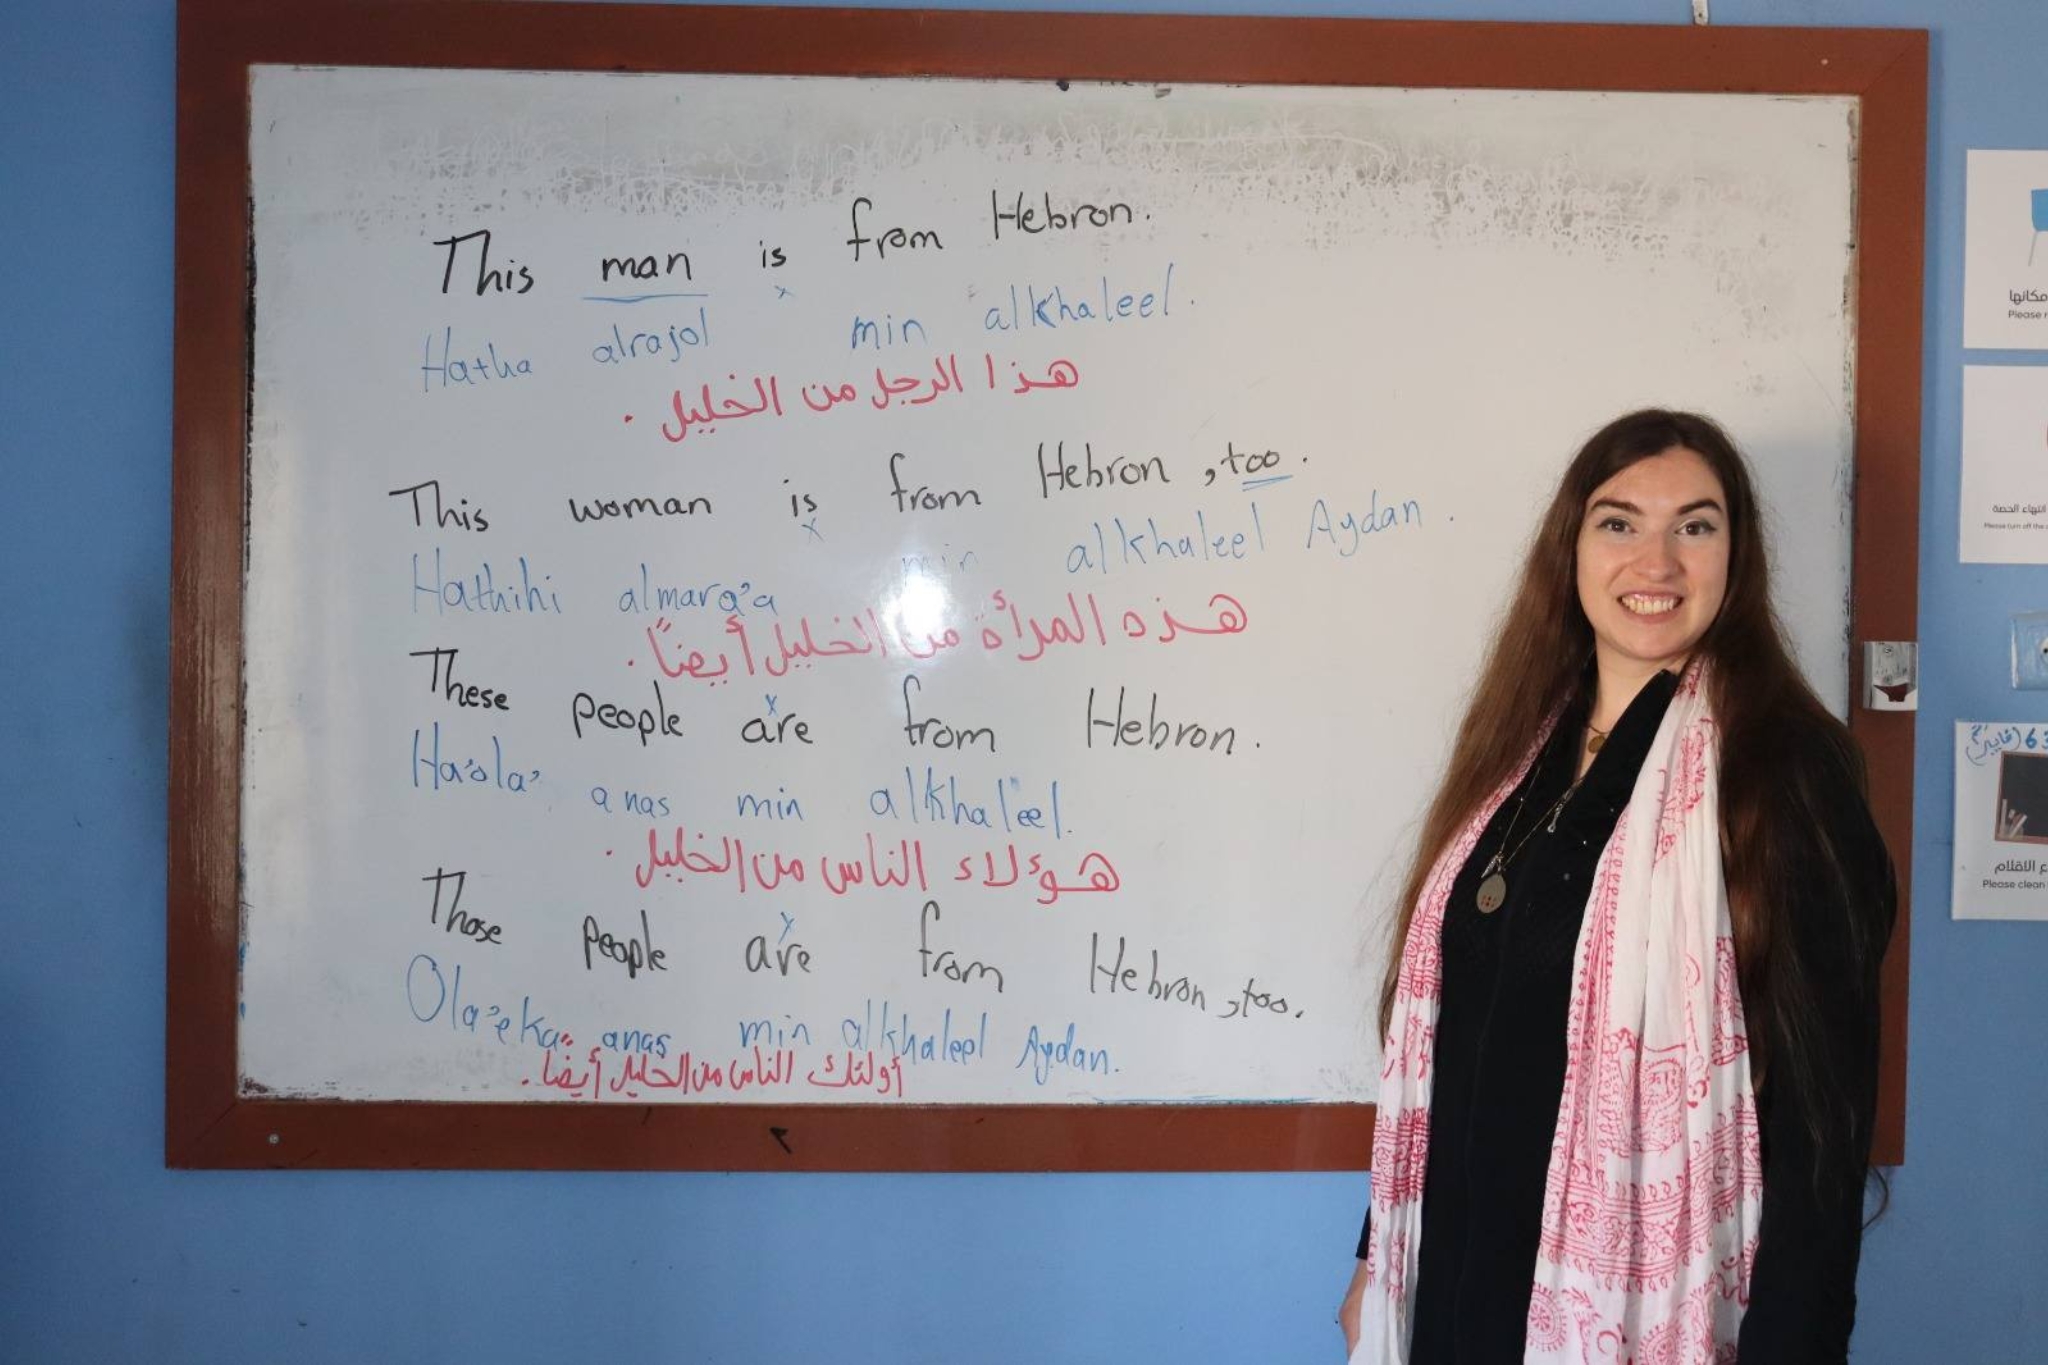 This man is from Hebron.
Hatha alrajol min alkhaleel.
هذا الرجل من الخليل.
This woman is from Hebron, too.
Hathihi almara'a min alkhaleel Aydan.
هذه المرأة من الخليل أيضاً.
These people are from Hebron.
Ha'ola' anas min alkhaleel.
هؤلاء الناس من الخليل.
Those people are from Hebron, too.
Ola'eka anas min alkhaleel Aydan.
أولئك الناس من الخليل أيضاً.
مكانها
Please
انتهاء الحصة
Please turn off the
63
الاقلام
Please clean